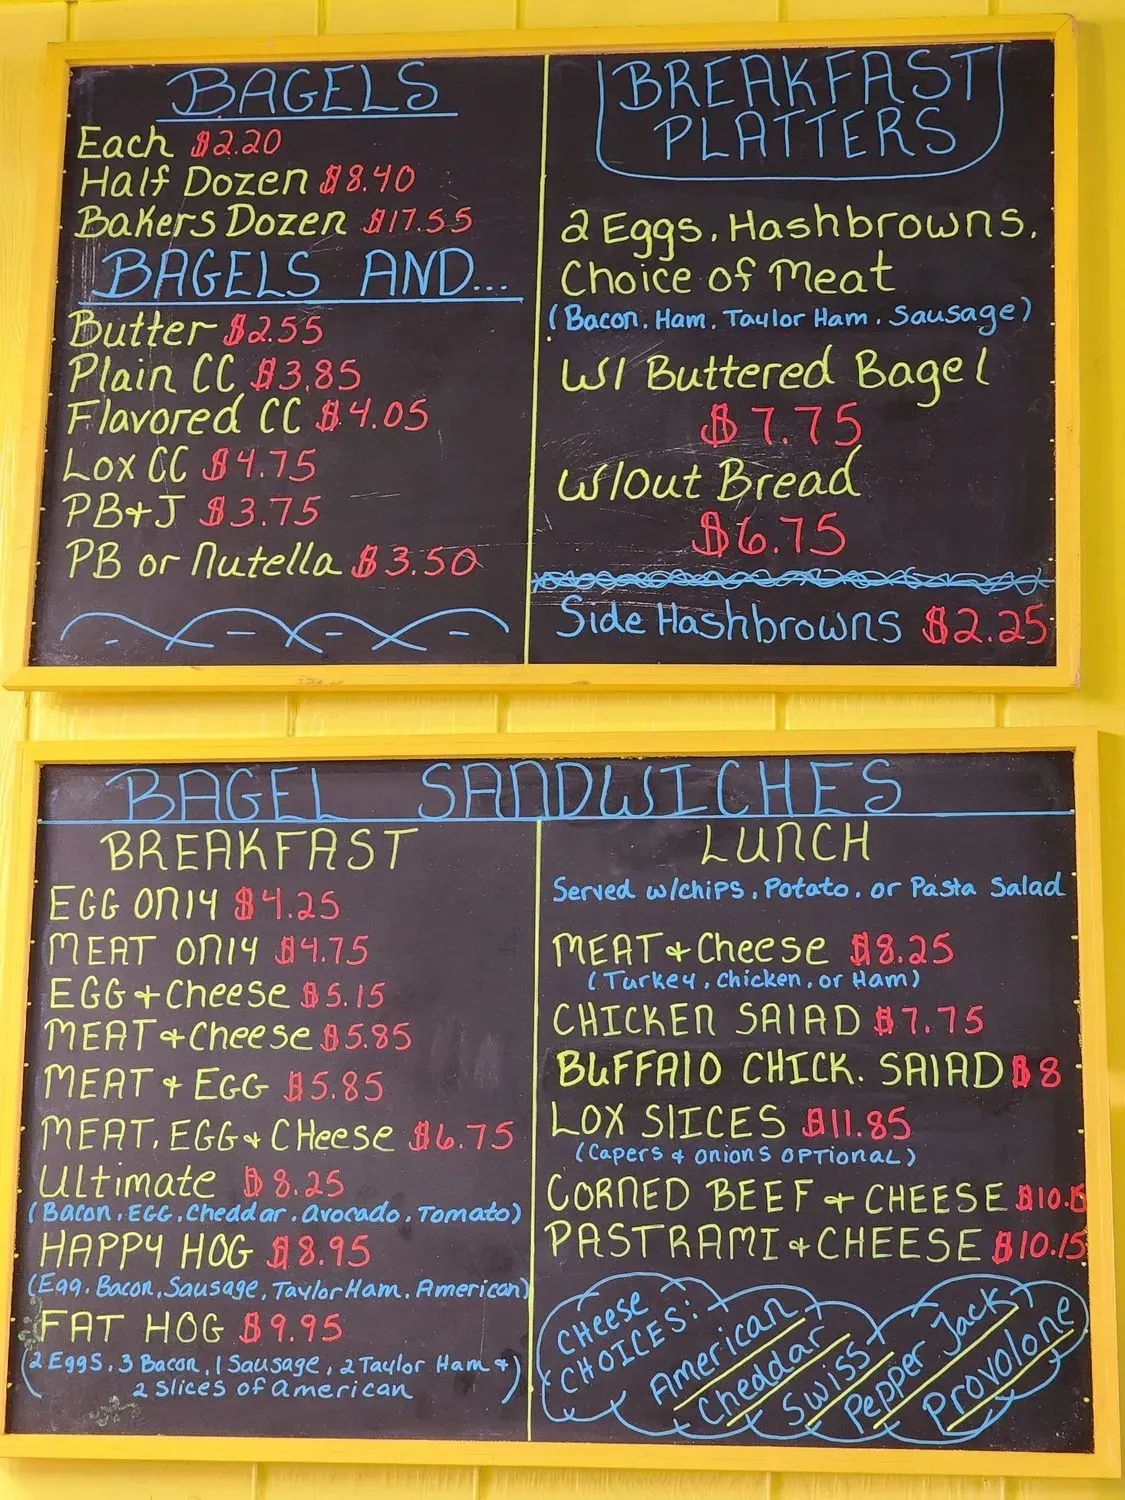 BAGELS
Each $2.20
Half Dozen $8.40
Bakers Dozen $17.55
BAGELS AND...
Butter $2.55
Plain CC $3.85
Flavored CC $4.05
Lox CC $4.75
PB+J $3.75
PB or Nutella $3.50
BREAKFAST
PLATTERS
2 Eggs, Hashbrowns,
Choice of Meat
(Bacon, Ham, Taylor Ham, Sausage)
W/ Buttered Bagel
$7.75
W/out Bread
$6.75
Side Hashbrowns $2.25
BAGEL SANDWICHES
BREAKFAST
EGG ONLY $4.25
MEAT ONLY $4.75
EGG + Cheese $5.15
MEAT + Cheese $5.85
MEAT + EGG $5.85
MEAT, EGG + CHeese $6.75
Ultimate $8.25
(Bacon, EGG, Cheddar, Avocado, Tomato)
HAPPY HOG $8.95
(Egg, Bacon, Sausage, Taylor Ham, American)
FAT HOG $9.95
(2 Eggs, 3 Bacon, 1 Sausage, 2 Taylor Ham +
2 slices of American)
LUNCH
Served w/chips, Potato, or Pasta Salad
MEAT + Cheese $8.25
(Turkey, Chicken, or Ham)
CHICKEN SALAD $7.75
BUFFALO CHICK. SALAD $8
LOX SLICES $11.85
(Capers + Onions OPTIONAL)
CORNED BEEF + CHEESE $10.15
PASTRAMI + CHEESE $10.15
CHeese
CHOICES:
American
Cheddar
Swiss
Pepper Jack
Provolone